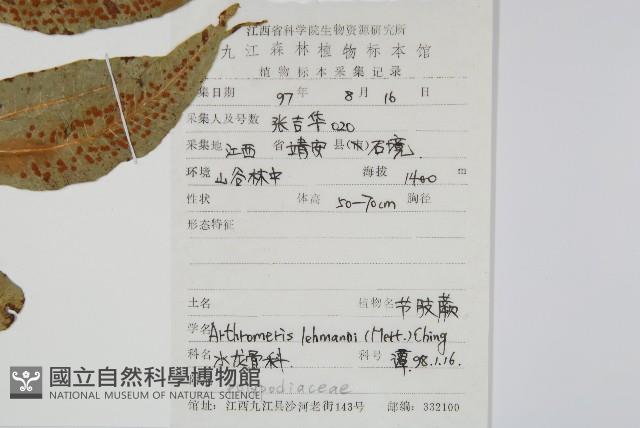 江西省科学院生物资源研究所
九江森林植物标本馆
植物标本采集记录
集日期 97 年 8 月 16 日
采集人及号数 张吉华 020
采集地 江西 省 靖安 县(市) 石境
环境 山谷林中 海拔 1400 m
性状 体高 50—70cm 胸径
形态特征
土名 植物名 节肢蕨
学名 Arthromeris lehmanni (Mett.) Ching
科名 水龙骨科 科号 谭.98.1.16.
podiaceae
馆址:江西九江县沙河老街143号 邮编:332100
國立自然科學博物館
NATIONAL MUSEUM OF NATURAL SCIENCE